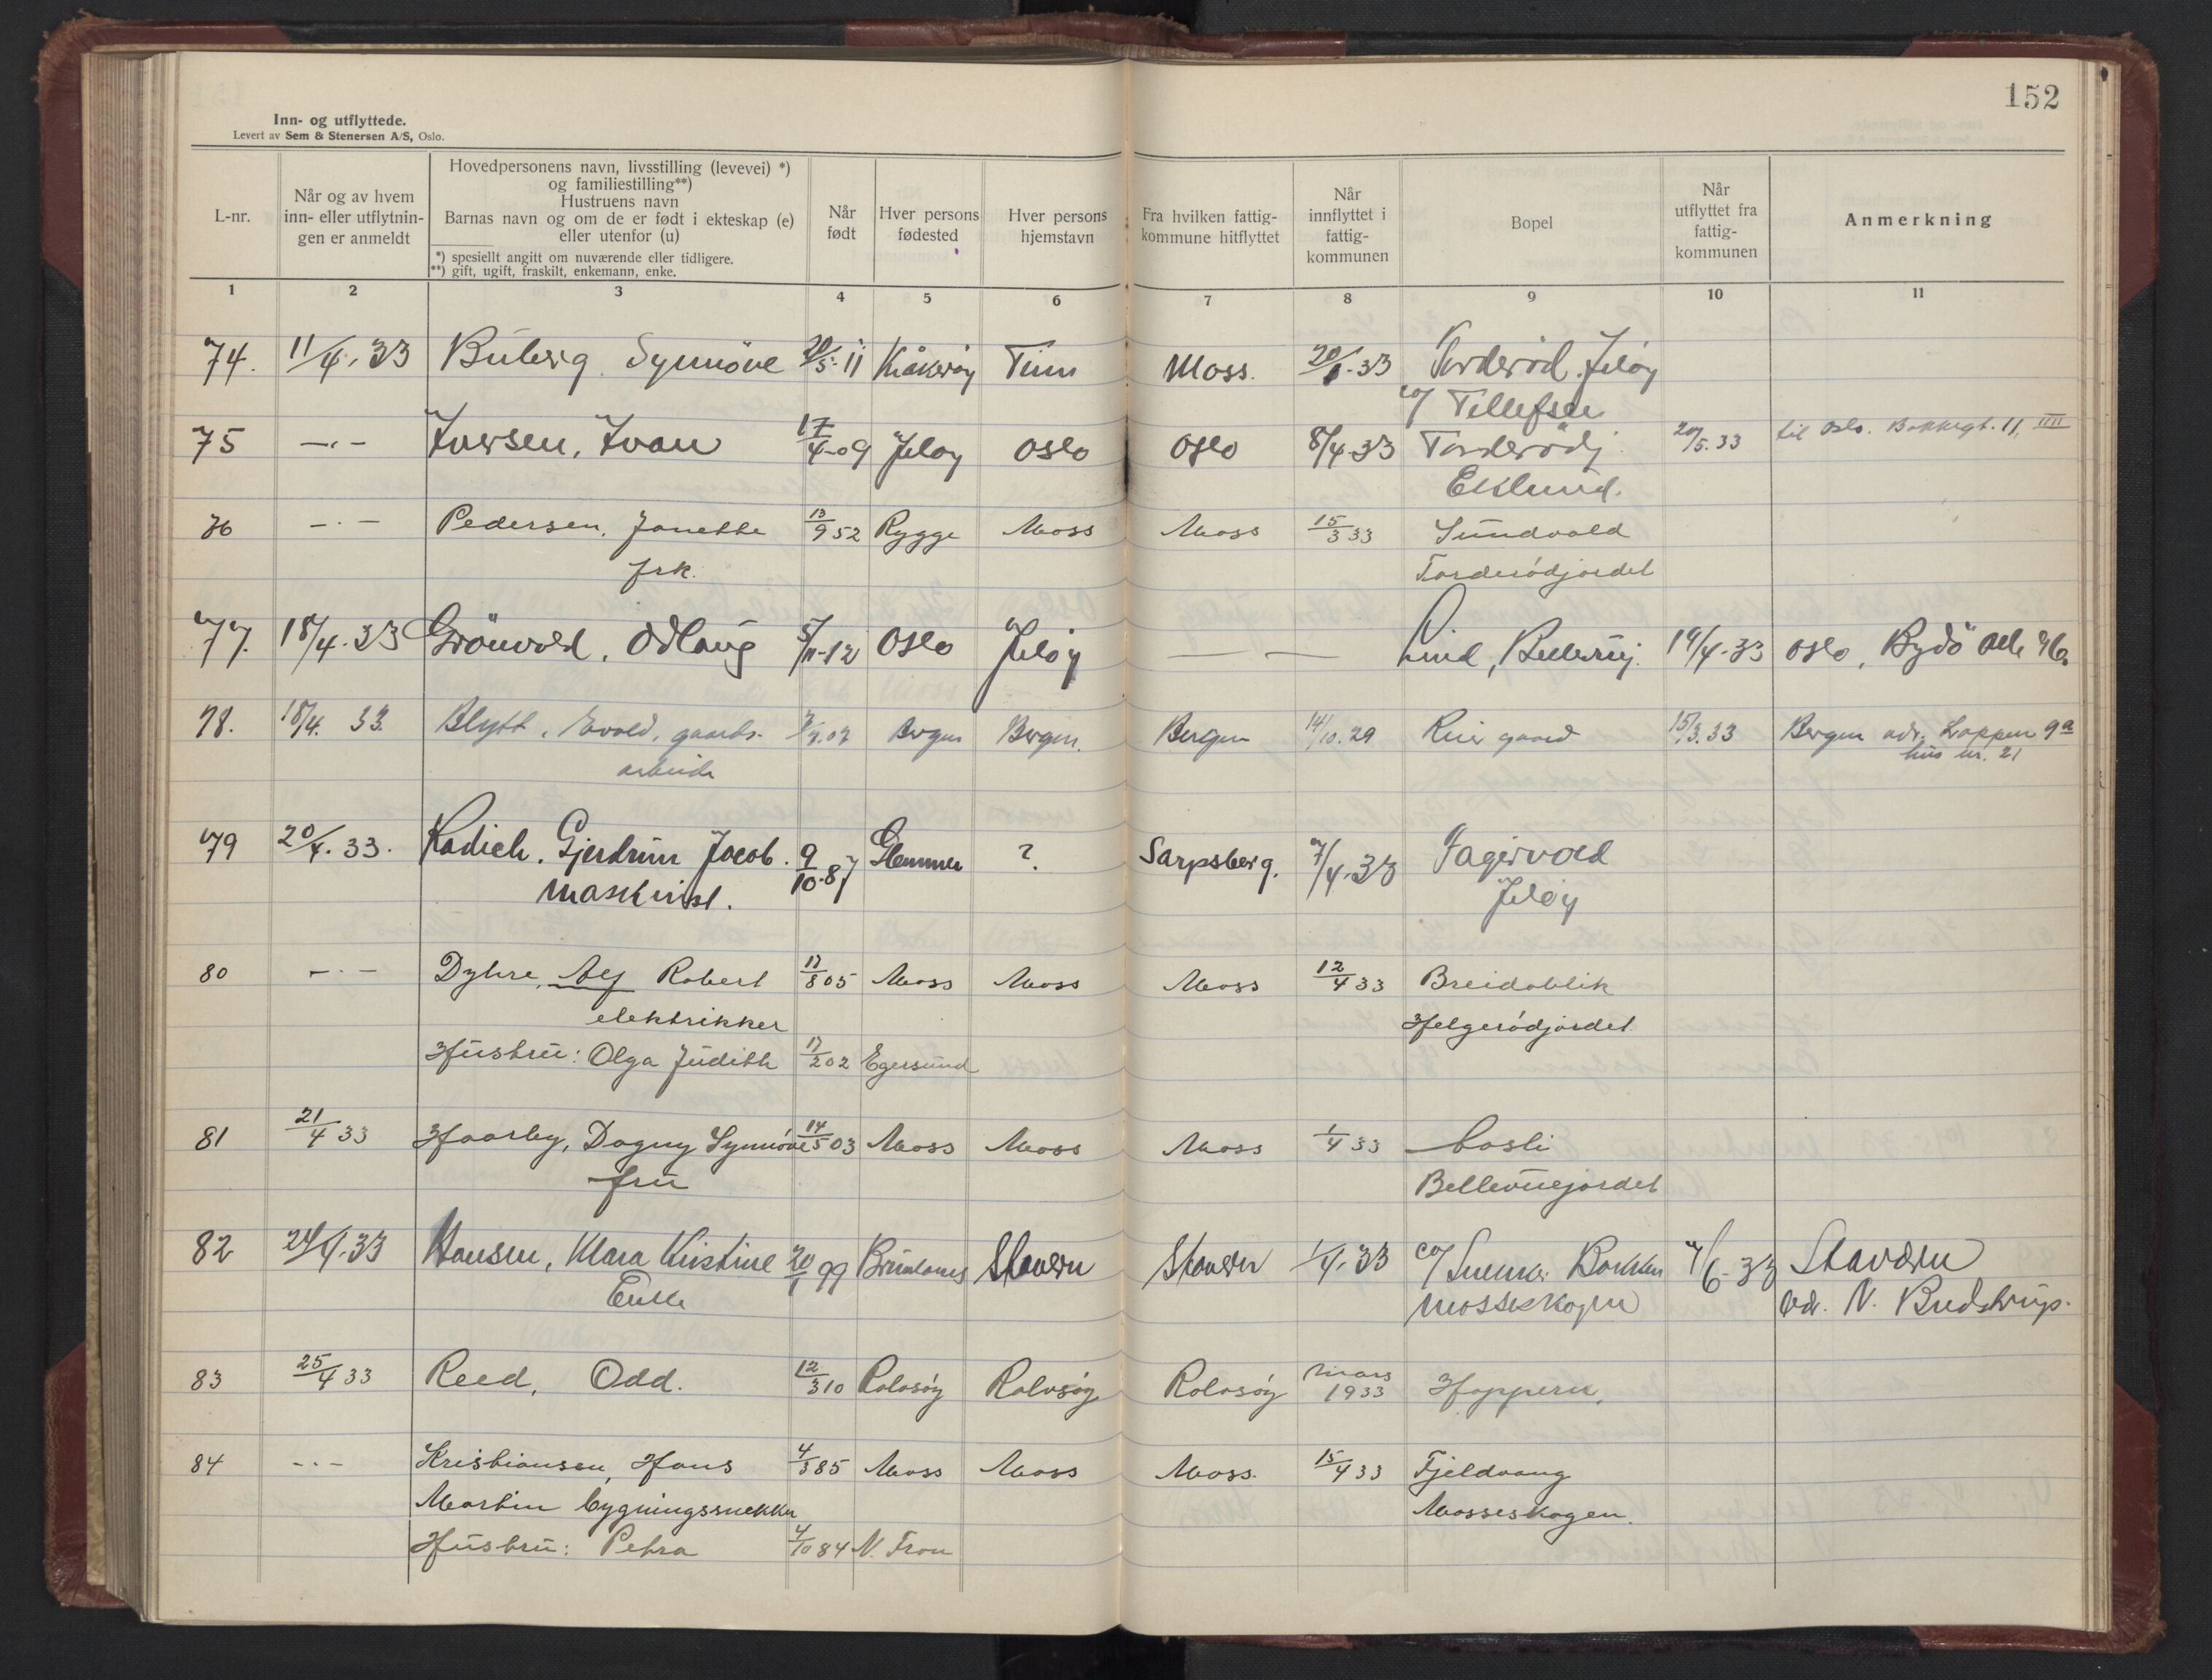 152
Inn- og utflyttede.
Levert av Sem & Stenersen A/S, Oslo.
L-nr.
Når og av hvem
inn- eller utflytnin-
gen er anmeldt
Hovedpersonens navn, livsstilling (levevei) *)
og familiestilling**)
Hustruens navn
Barnas navn og om de er født i ekteskap (e)
eller utenfor (u)
*) spesiellt angitt om nuværende eller tidligere.
**) gift, ugift, fraskilt, enkemann, enke.
Når
født
Hver persons
fødested
Hver persons
hjemstavn
Fra hvilken fattig-
kommune hitflyttet
Når
innflyttet i
fattig-
kommunen
Bopel
Når
utflyttet fra
fattig-
kommunen
Anmerkning
1 2 3 4 5 6 7 8 9 10 11
74. 11/4.33 Synnöve 20/5-11 Kråkeröy Tinn Moss. 20/1-33 Torderöd. Jelöy
c/o Tellefsen
75 -"- Iversen, Ivan 17/4-09 Jeloy Oslo Oslo 8/4-33 Torderödj. 20/5.33 til Oslo. Bakkegt. 11, IIII
Eklund.
76 -"- Pedersen, Janette 13/9 52 Rygge Moss Moss 15/3 33 Sundvold
frk. Torderödjordet
77. 18/4.33 Grönvold, Odlaug 5/11-12 Oslo Jeløy — — Lind, 19/4-33 Oslo, Bygdö
78. 18/4. 33. Blytt, Evald, gaards- Bergen Bergen. Bergen 14/10.29 Rier gaard 15/3.33 Bergen adr. Loppen 9a
arbeide hus nr. 21
79 20/4.33. Radich, Gjerdrum Jacob. 9/10-87 Glemmen ?. Sarpsborg. 7/4.33 Fagervold
maskinist. Jeløy
80 -"- Dyhre, Alf Robert 17/8 05 Moss Moss Moss 12/4 33 Breidablik
elektrikker Helgerödjordet
Hustru: Olga Judith 17/2 02 Egersund
81 21/4 33 Haarby, Dagny Synnöve 14/5 03 Moss Moss Moss 1/4 33 Aasli
fru Bellevuejordet
82 24/4.33 Hansen, Klara Kristine 20/1 99 Brunlanes Stavern Stavern 1/4.33 c/o Bakken 7/6-33 Stavern
Enke Mosseskogen ad. N. Budstrup.
83 25/4 33 Reed, Odd. 12/3 10 Rolvsöy Rolvsöy Rolvsöy mars
1933 Hoppern.
84 -"- Kristiansen, Hans 4/3 85 Moss Moss Moss. 15/4 33 Fjeldvang
Martin bygningssnekker Mosseskogen.
Hustru: Petra 4/10 84 N. Fron